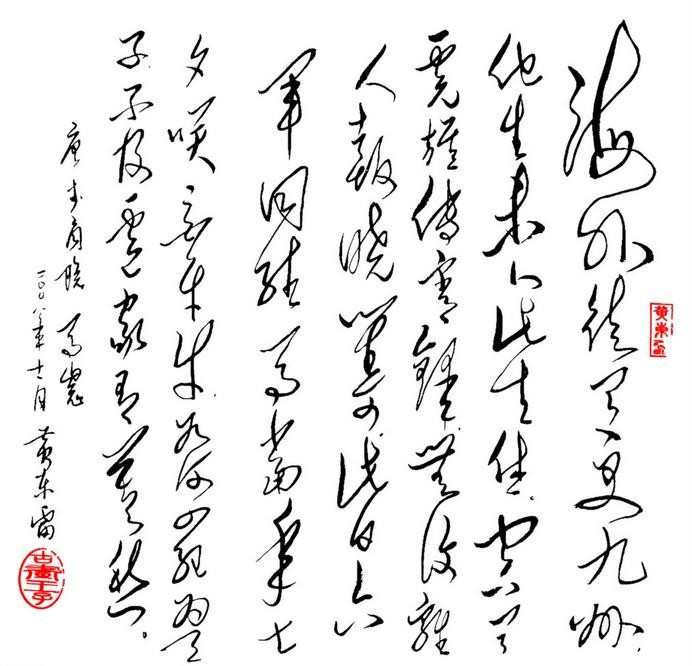 海外徒闻更九州
他生未卜此生休空闻
虎旅傳宵無復雞
人報曉籌此日六
軍同駐馬當七
夕咲牽牛如何四紀為天
子不及盧家有莫愁
唐李商隐馬嵬
二〇〇八年十月黄东雷